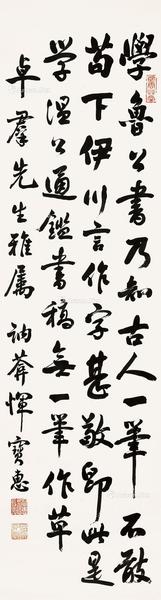 學魯公書乃知古人一筆不敢
苟下伊川言作字甚敬即此是
学温公通鑑書稿無一筆作草
卓羣先生雅属 訥葊惲寶惠